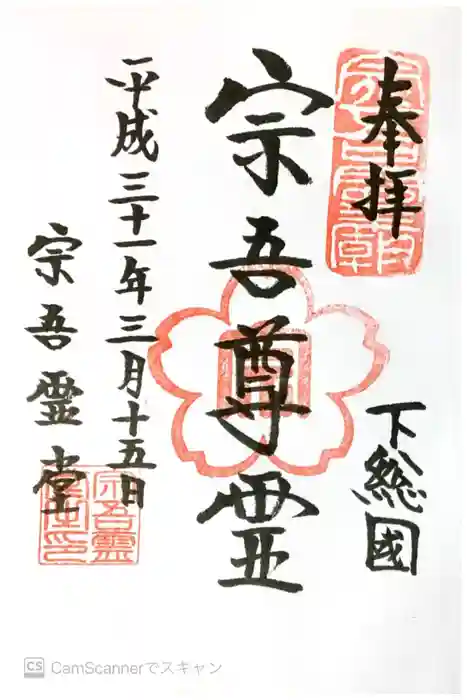 奉拝
下総國
宗吾尊霊
平成三十一年三月十五日
宗吾霊堂
CS CamScannerでスキャン